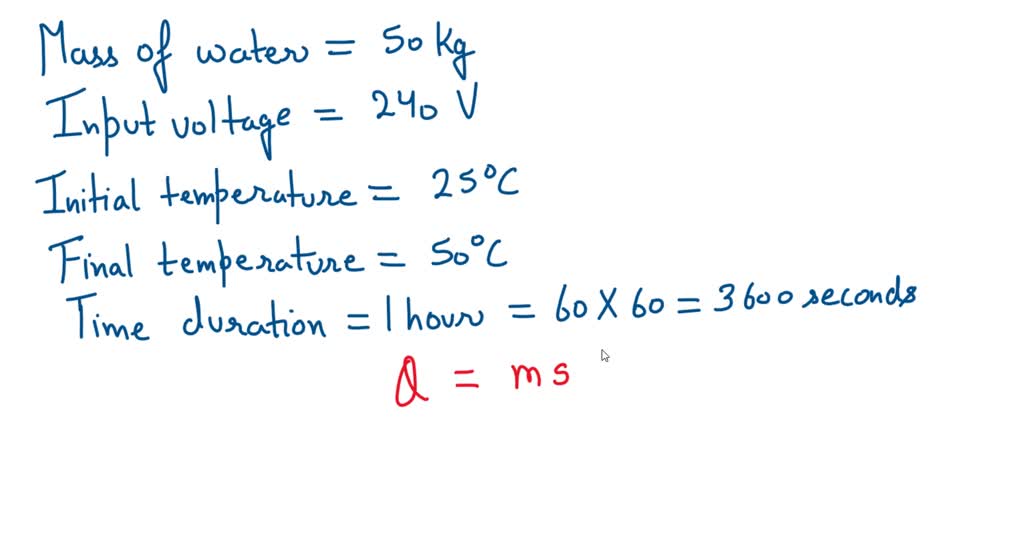 Mass of water = 50 kg
Input voltage = 240 V
Initial temperature = 25°C
Final temperature = 50°C
Time duration = 1 hour = 60 X 60 = 3600 seconds
Q = ms